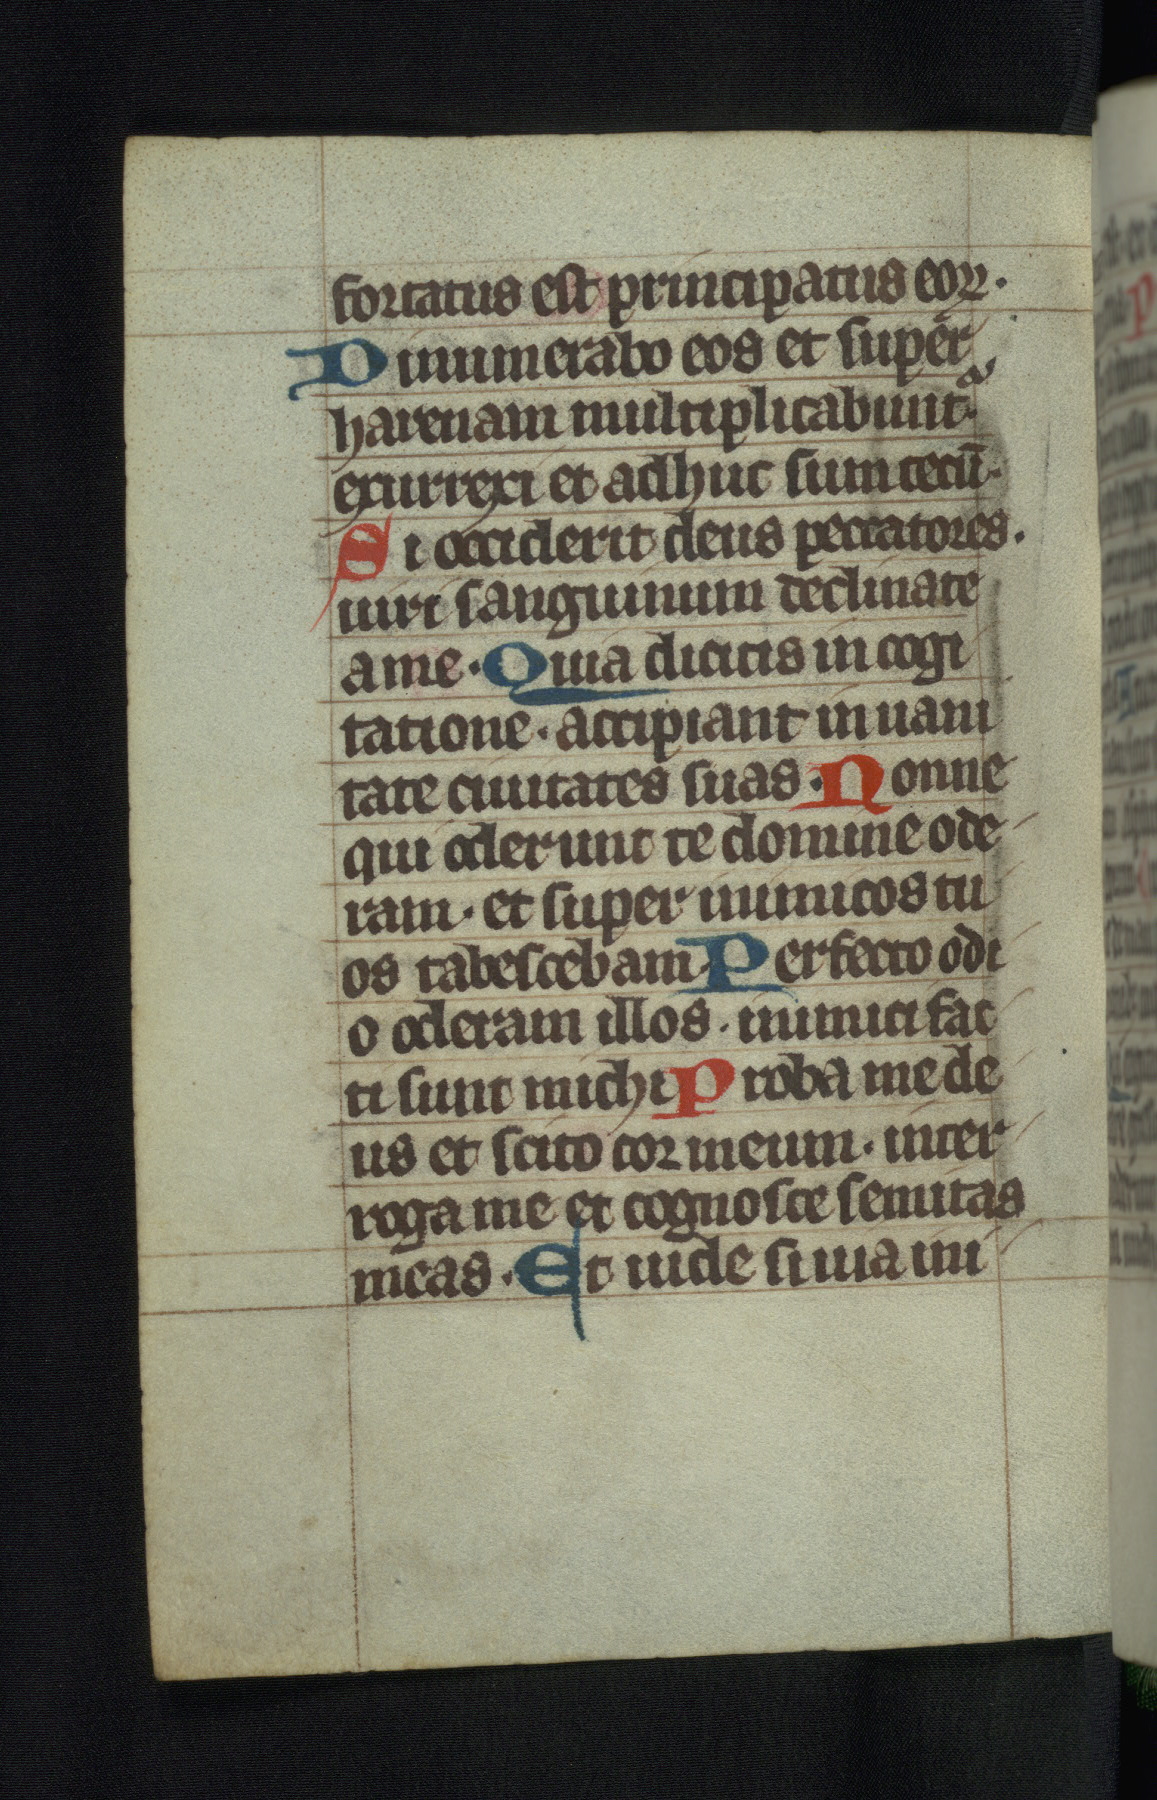 fortatus est principatus eoꝝ.
Dinumerabo eos et super
harenam multiplicabunt᷑
exurrexi et adhuc sum tecū.
Si occiderit deus peccatores.
uiri sanguinum declinate
a me. Quia dicitis in cogi
tatione. accipiant in uani
tate ciuitates suas. Nonne
qui oderunt te domine ode
ram. et super inimicos tu
os tabescebam. Perfecto odi
o oderam illos. inimici fac
ti sunt michi Proba me de
us et scito cor meum. inter
roga me et cognosce semitas
meas. Et uide si uia ini